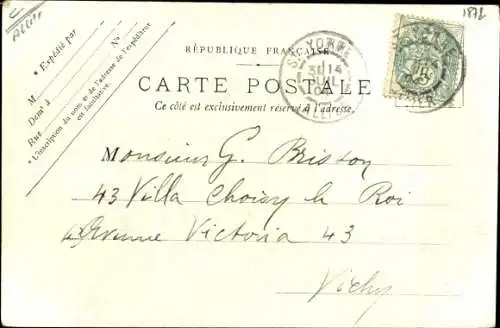 Allier
1872
* Expédié par
M
Nom
Dom^e à
Rue
N°
* L'inscription du nom et de l'adresse de l'expéditeur
est facultative.
RÉPUBLIQUE FRANÇAISE
CARTE POSTALE
Ce côté est exclusivement réservé à l'adresse.
ST YORRE
31
ALLIER
Monsieur G. Brisson
43 Villa Choisy le Roi
Avenue Victoria 43
Vichy